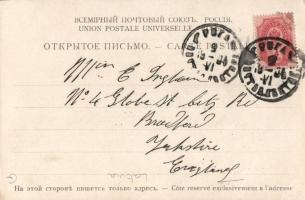 ВСЕМІРНЫЙ ПОЧТОВЫЙ СОЮЗЪ. РОССІЯ.
UNION POSTALE UNIVERSELLE. RUSSIE.
ОТКРЫТОЕ ПИСЬМО. — CARTE POSTALE
РИГА
Miss E Ingham
No 4 Globe St City Rd
Bradford
Yorkshire
England
Latvia
На этой сторонѣ пишется только адресъ. — Côté réservé exclusivement à l'adresse